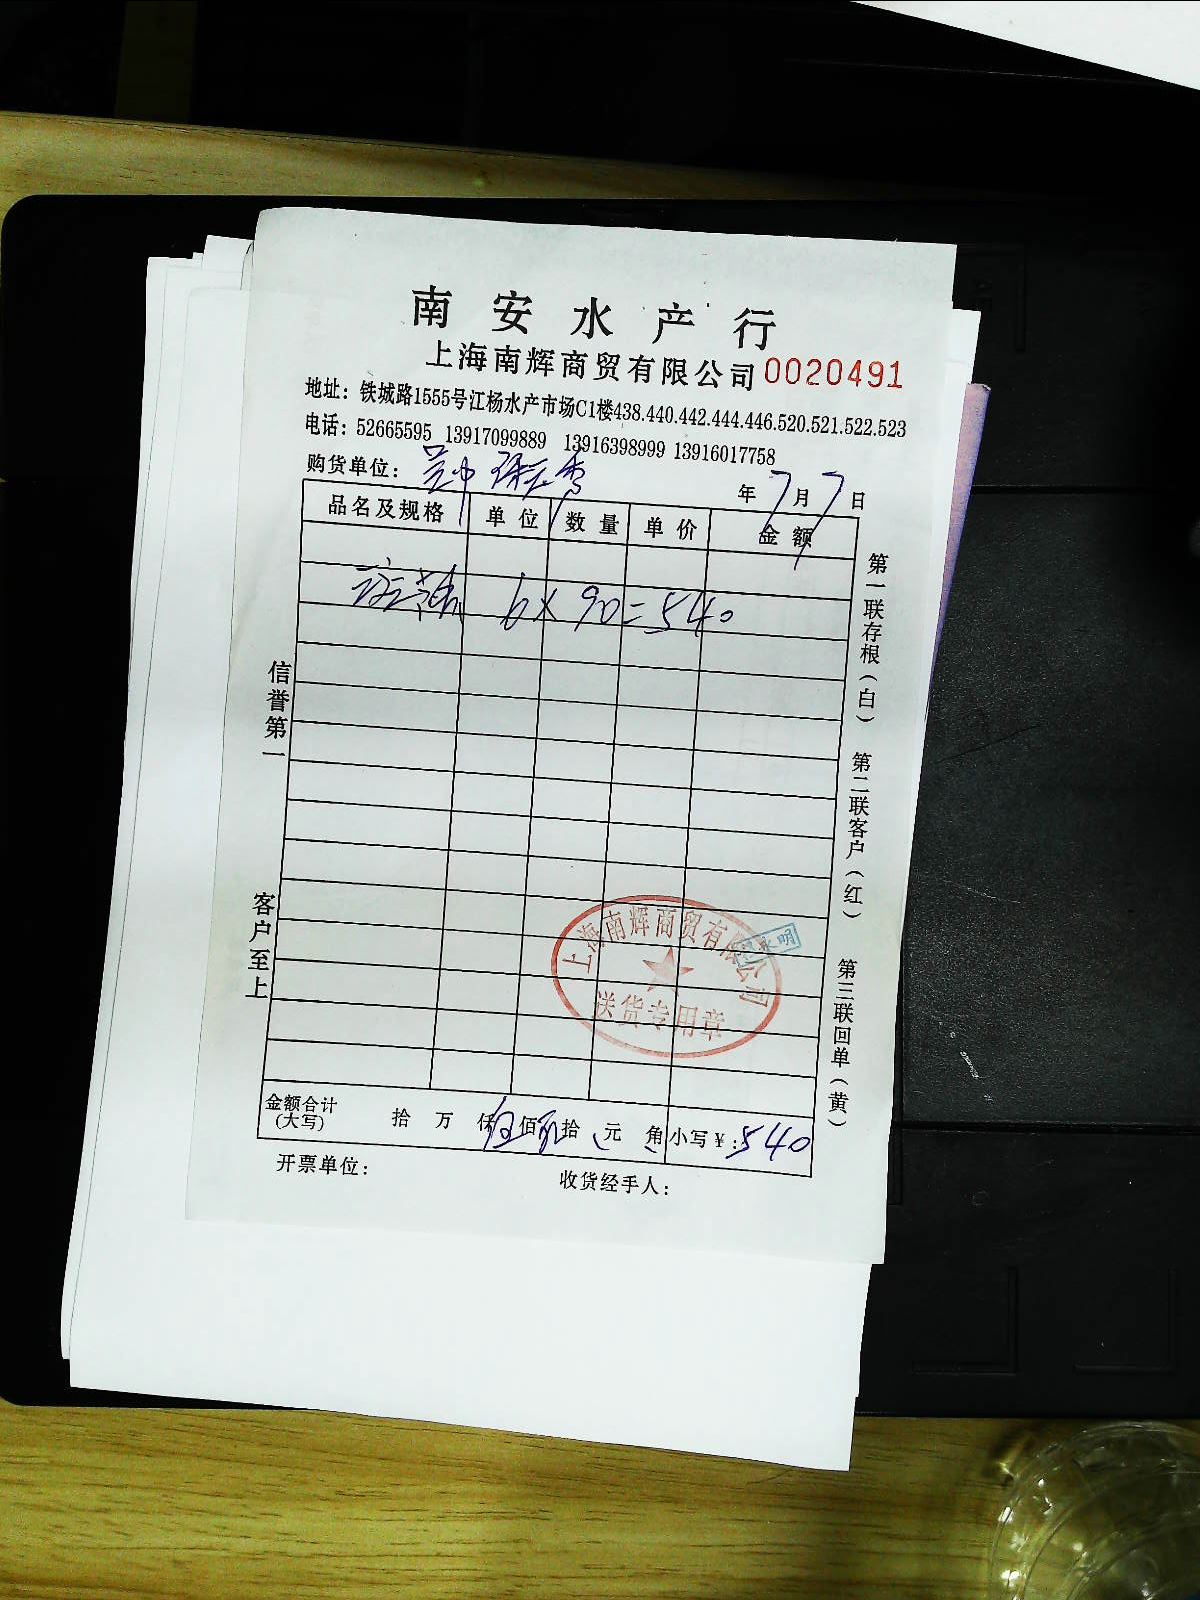 南安水产行
上海南辉商贸有限公司 0020491
地址：铁城路1555号江杨水产市场C1楼438.440.442.444.446.520.521.522.523
电话：52665595 13917099889 13916398999 13916017758
购货单位：
年 7 月 7 日
品名及规格 单位 数量 单价 金额
6 X 90 = 540
信誉第一
客户至上
第一联存根（白）
第二联客户（红）
第三联回单（黄）
上海南辉商贸有限公司
送货专用章
金额合计（大写） 拾 万 仟 伍 佰 拾 元 角 小写￥：540
开票单位：
收货经手人：